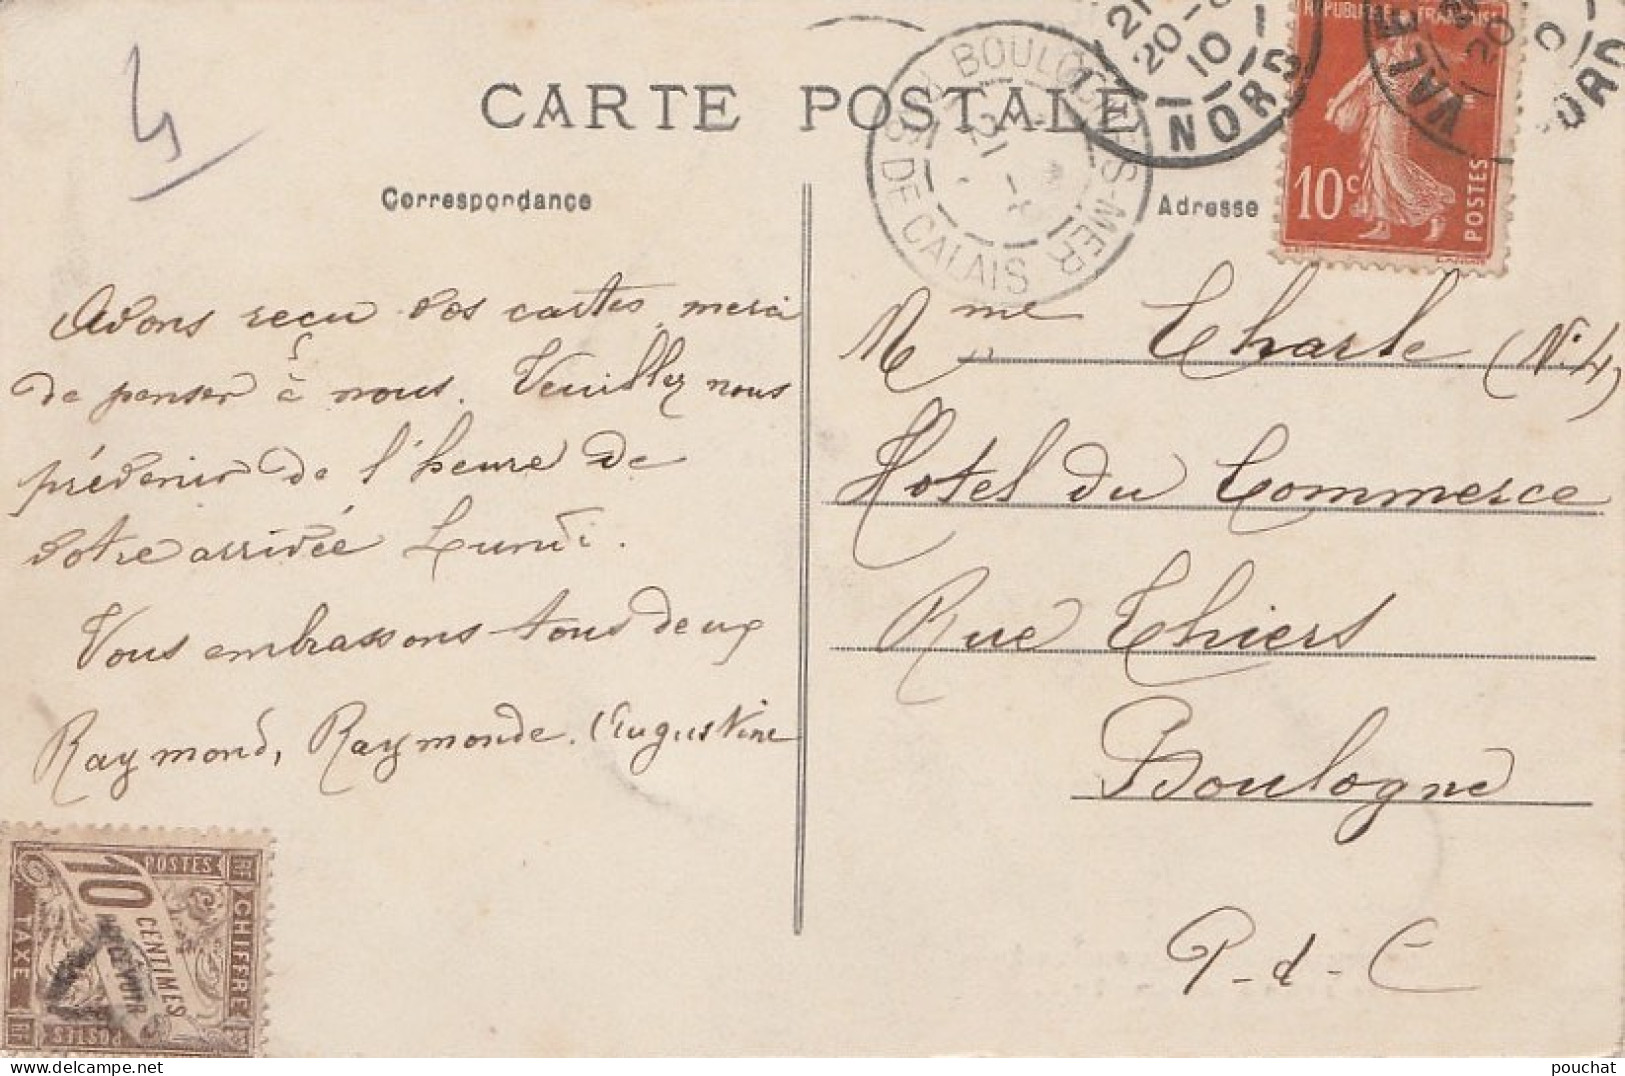 CARTE POSTALE
Correspondance
Adresse
BOULOGNE-S-MER
PAS DE CALAIS
21
20
10
NORD
REPUBLIQUE FRANÇAISE
10c
POSTES
Avons reçu vos cartes, merci
de penser à nous. Veuillez nous
prévenir de l'heure de
votre arrivée Lundi.
Vous embrassons tous deux
Raymond, Raymonde. Augustine
Mme Charle (N.4)
Hotel du Commerce
Rue Thiers
Boulogne
P-d-C
POSTES
CHIFFRE
TAXE
10 CENTIMES
A PERCEVOIR
POSTES
pouchat